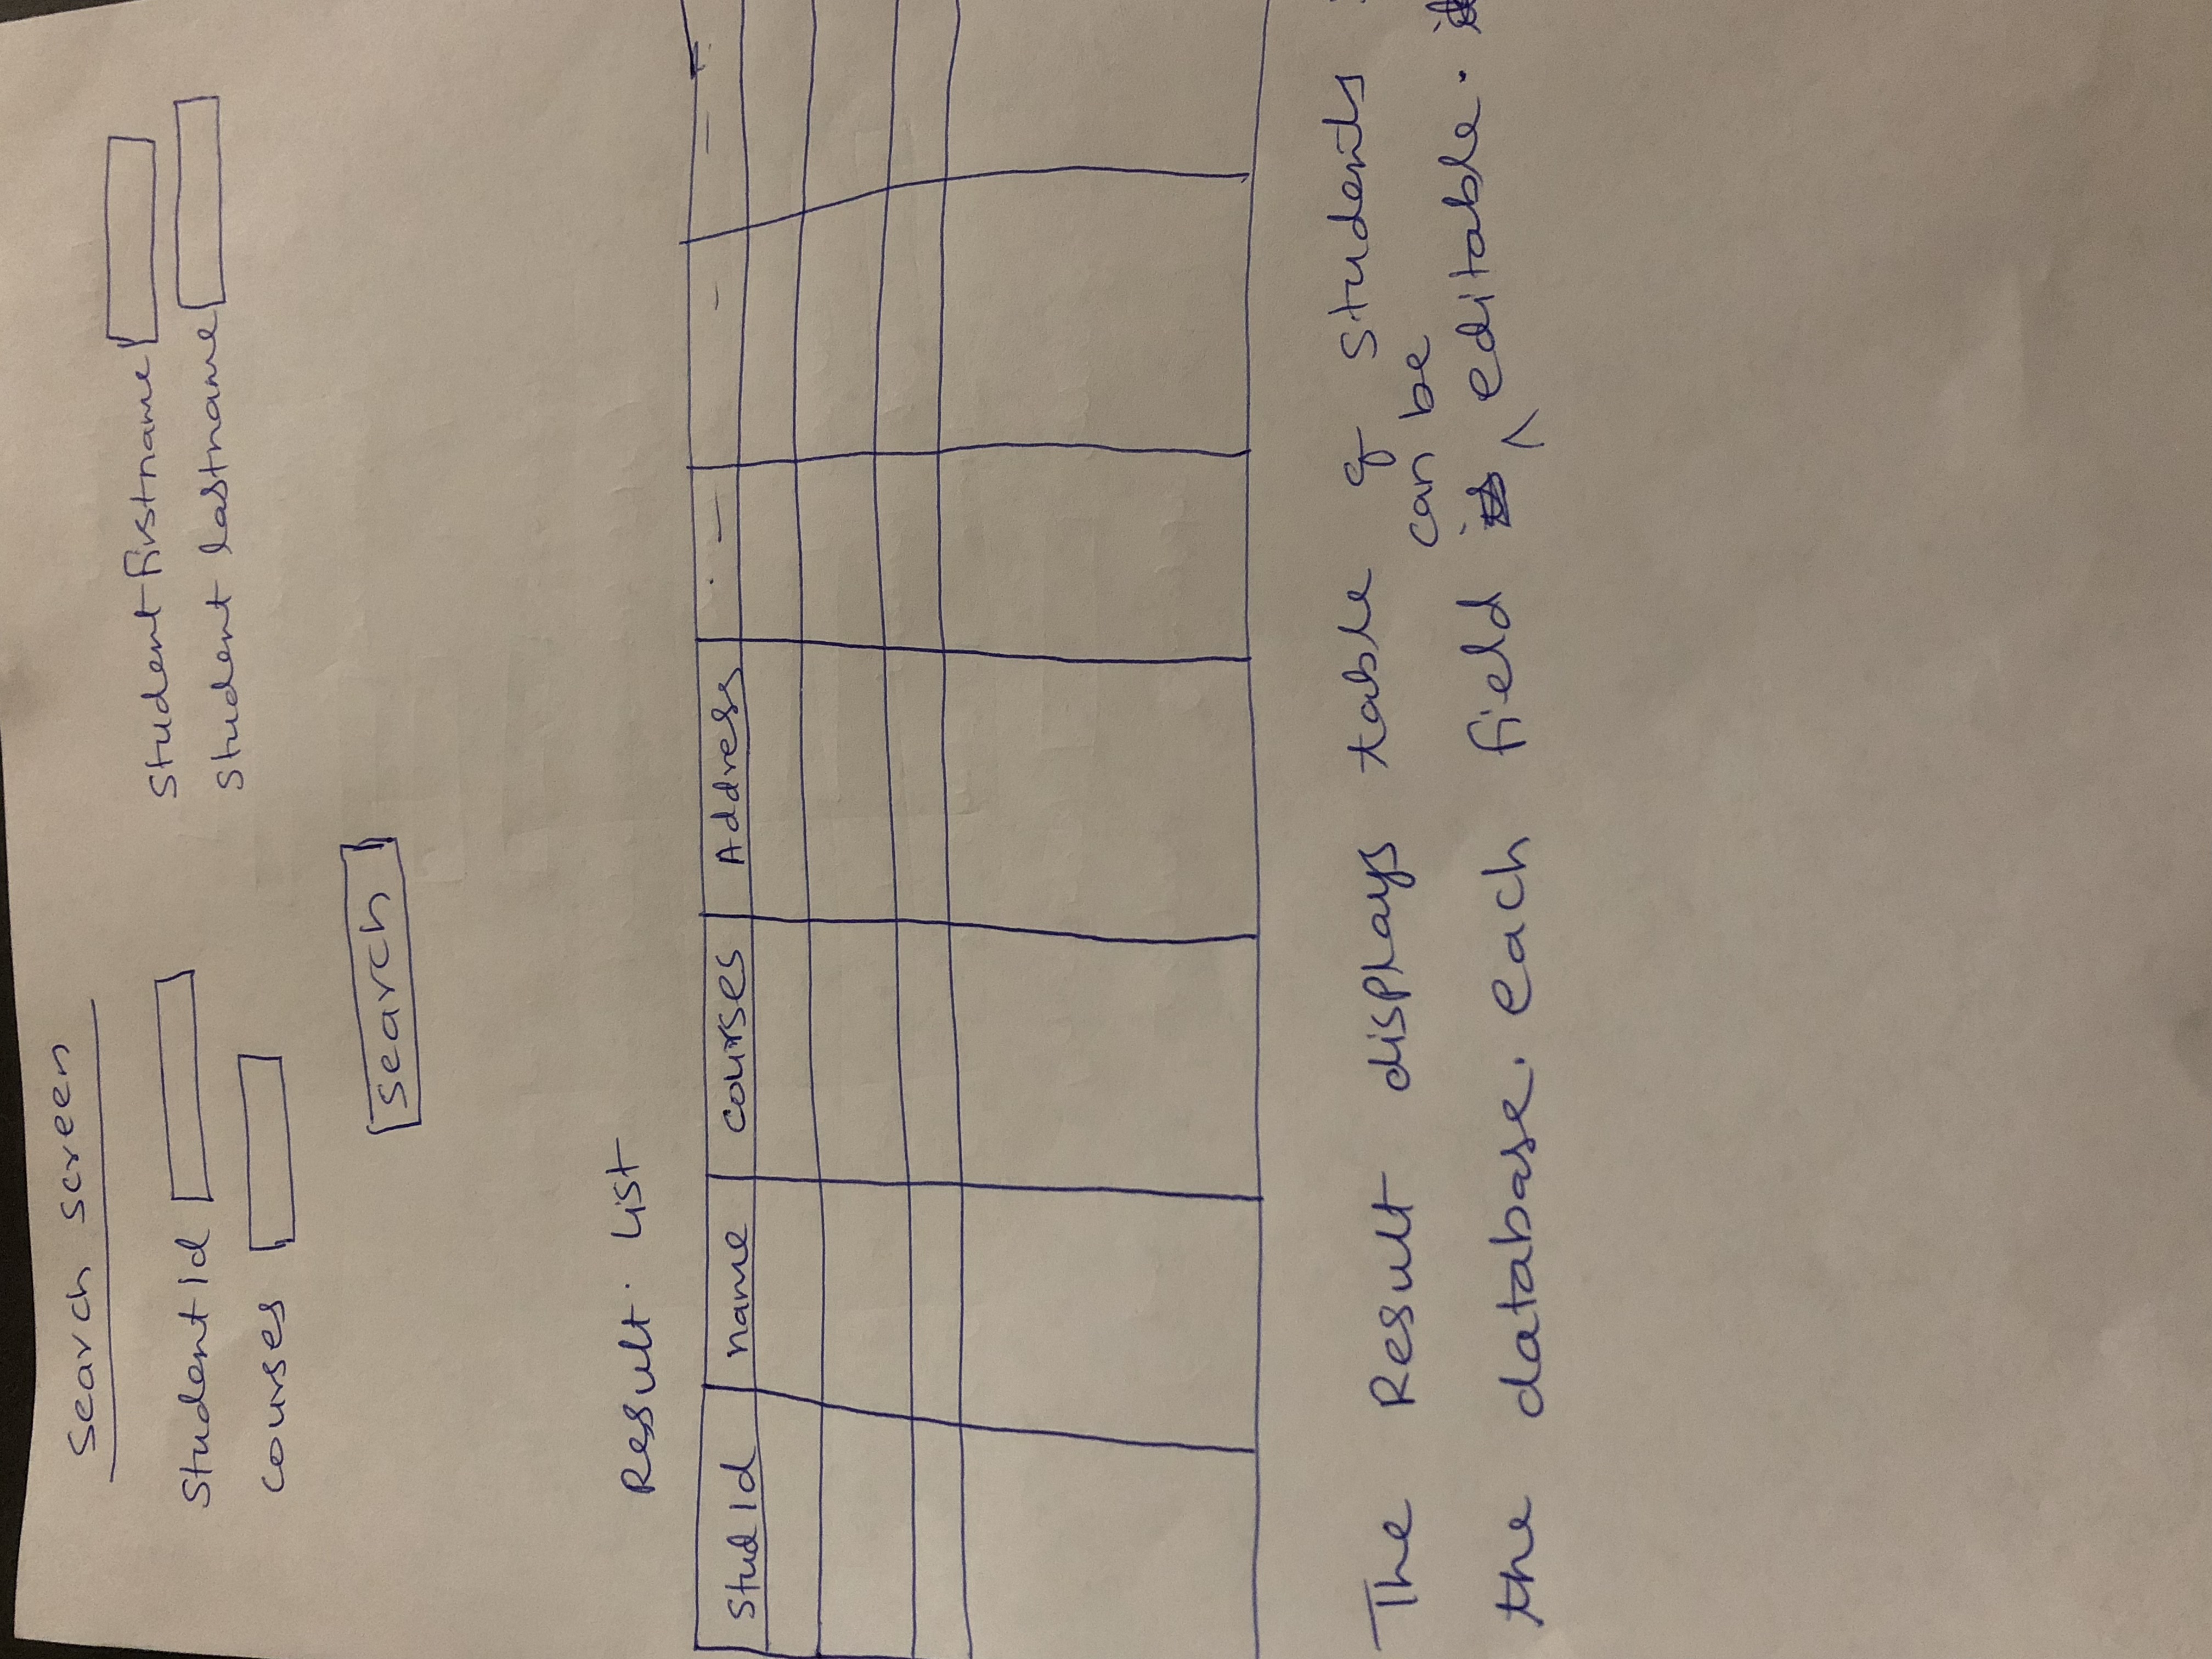 Search screen
Student Id
Student firstname
Student lastname
courses
search
Result list
Stud Id name courses Address
The Result displays table of Students
can be
the database. each field editable.